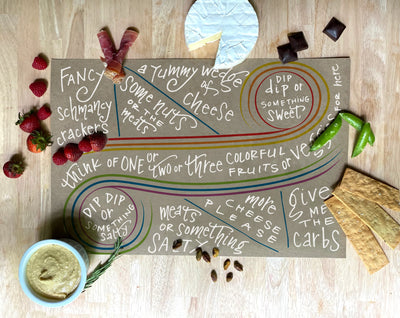 FANCY
schmancy
crackers
SOME NUTS
OR THE
MEATS
a yummy wedge
of
cheese
DIP
dip or
SOMETHING
SWEET
FOR HERE
THINK OF ONE OR
two or three COLORFUL
FRUITS or
veggies
DIP DIP
OR
SOMETHING
salty
meats
OR something
SALTY
more
CHEESE
PLEASE
give
ME
THE
carbs